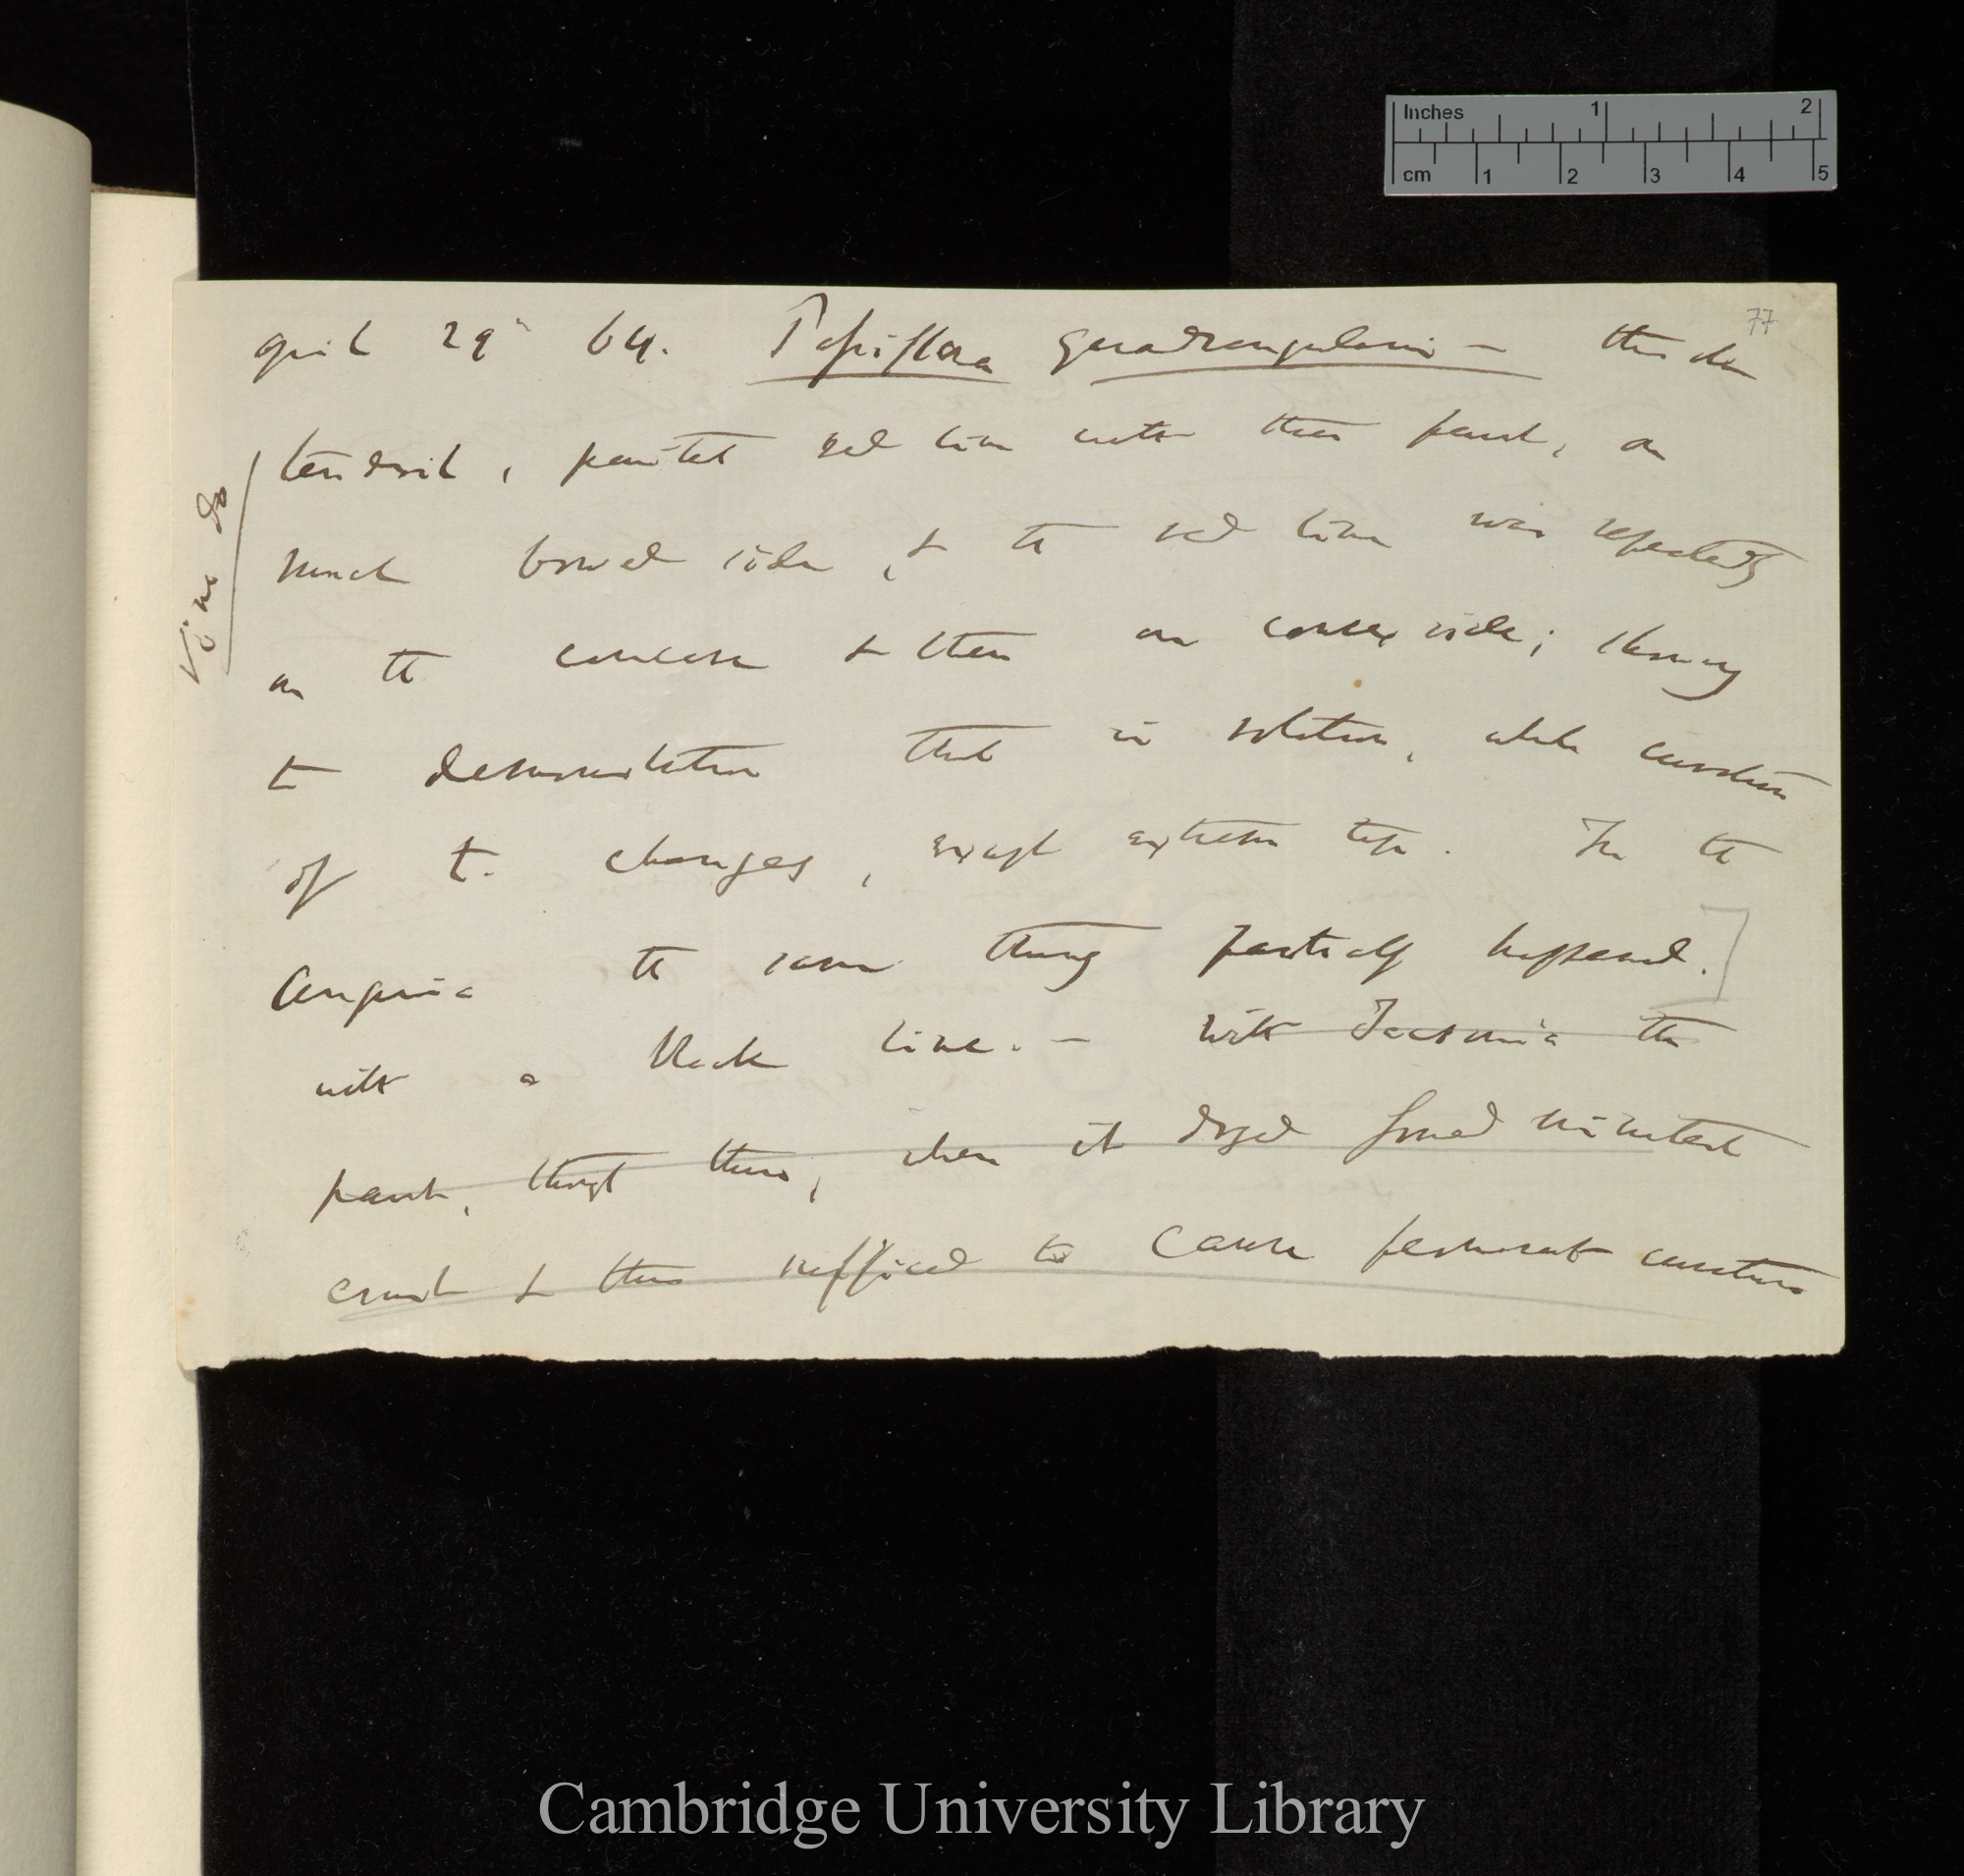 Inches 1 2
cm 1 2 3 4 5
77
April 29th 64. Passiflora quadrangularis —
tendril, painted red line with thin paint, on
much bowed side, & the red line was repeatedly
on the concave & then on convex side; showing
to demonstration that in rotation, whole curvature
of t. changes, except extreme tip. In the
the same thing partially happened.]
with a black line. — With Tacsonia the
paint, though thin, when it dryed formed minutest
crust & this sufficed to cause permanent curvature
Vine do
Cambridge University Library